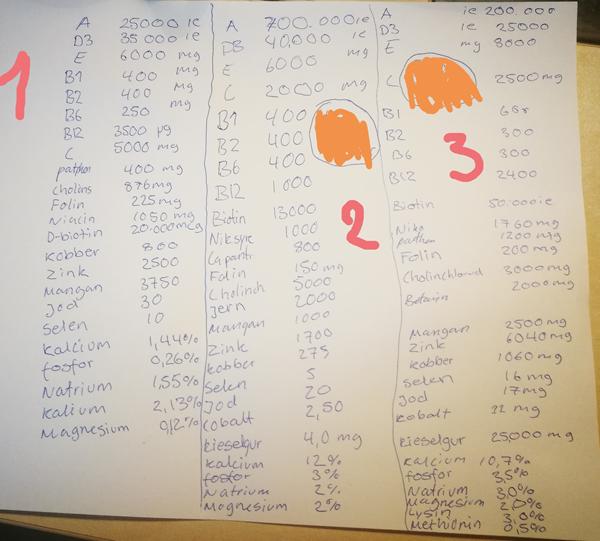 1
A 25000 ie
D3 35000 ie
E 6000 mg
B1 400 mg
B2 400 mg
B6 250 mg
B12 3500 µg
C 5000 mg
panthen 400 mg
Cholins 876mg
Folin 225mg
Niacin 1050 mg
D-biotin 20.000mcg
Kobber 800
Zink 2500
Mangan 3750
Jod 30
Selen 10
Kalcium 1,44%
fosfor 0,26%
Natrium 1,55%
Kalium 2,13%
Magnesium 0,12%
2
A 700.000ie
D3 40,000 ie
E 6000 mg
C 2000 mg
B1 400
B2 400
B6 400
B12 1000
Biotin 13000
Niksyre 1000
Capantt 800
Folin 150 mg
Cholinch 5000
Jern 2000
Mangan 1000
Zink 1700
Kobber 275
Selen 5
Jod 20
Cobalt 2,50
Kieselgur 4,0 mg
Kalcium 12%
fosfor 3%
Natrium 2%
Magnesium 2%
3
A ie 200.000
D3 ie 25000
E mg 8000
C 2500mg
B1
B2 300
B6 300
B12 2400
Biotin 50.000ie
Niko 1760mg
panthen 1200mg
Folin 200 mg
Cholinchlorid 3000mg
Betain 2000mg
Mangan 2500mg
Zink 6040mg
Kobber 1060mg
Selen 16mg
Jod 17mg
Kobalt 22 mg
Kieselgur 25000 mg
Kalcium 10,7%
fosfor 3,5%
Natrium 3,0%
Magnesium 2,0%
Lysin 3,0%
Methionin 0,5%